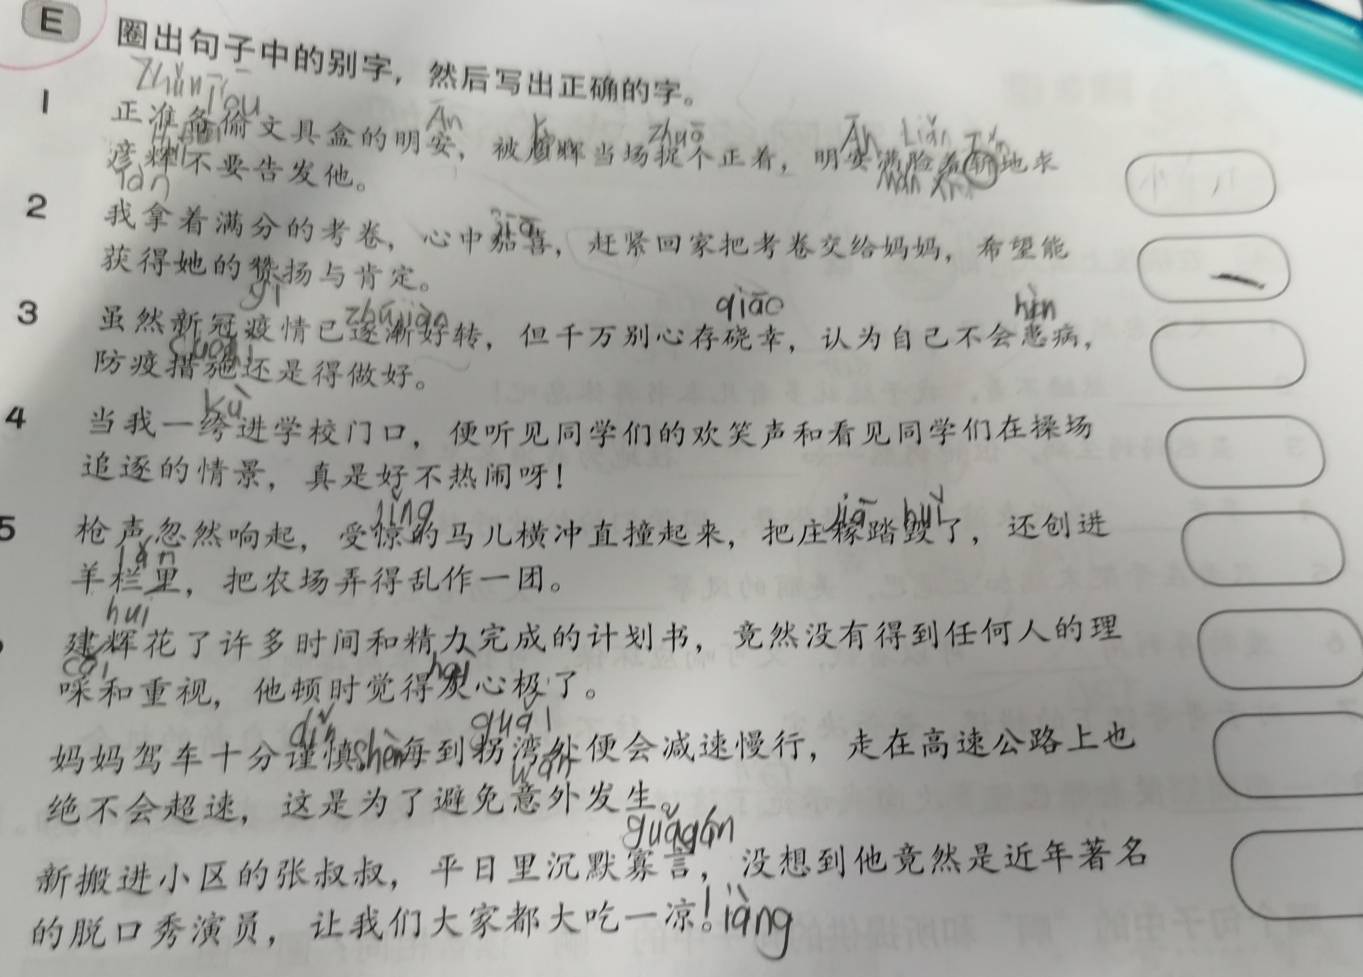 E 圈出句子中的别字，然后写出正确的字。
zhǔn tōu
1 正准备偷文具盒的明安，被彦晖当场捉个正着，明安满脸羞斩地求
彦辉不要告发他。
2 我拿着满分的考卷，心中茄喜，赶紧回家把考卷交给妈妈，希望能
获得她的赞扬与肯定。
zhú jiàn qiāo hàn
3 虽然新冠疫情已逐渐好转，但千万别心存硗幸，认为自己不会患病，
防疫措施还是得做好。
kù
4 当我一绔进学校门口，便听见同学们的欢笑声和看见同学们在操场
追逐的情景，真是好不热闹呀！
jīng jiā huǐ
5 枪声忽然响起，受惊的马儿横冲直撞起来，把庄稼踏毁了，还创进
lán
羊栏里，把农场弄得乱作一团。
huī
建辉花了许多时间和精力完成的计划书，竟然没有得到任何人的理
cǎi
啋和重视，他顿时觉得灰心极了。
guǎi
妈妈驾车十分谨慎shèn每到拐湾处便会减速慢行，走在高速公路上也
wān
绝不会超速，这是为了避免意外发生。
新搬进小区的张叔叔，平日里沉默寡言，没想到他竟然是近年著名
的脱口秀演员，让我们大家都大吃一凉！liàng